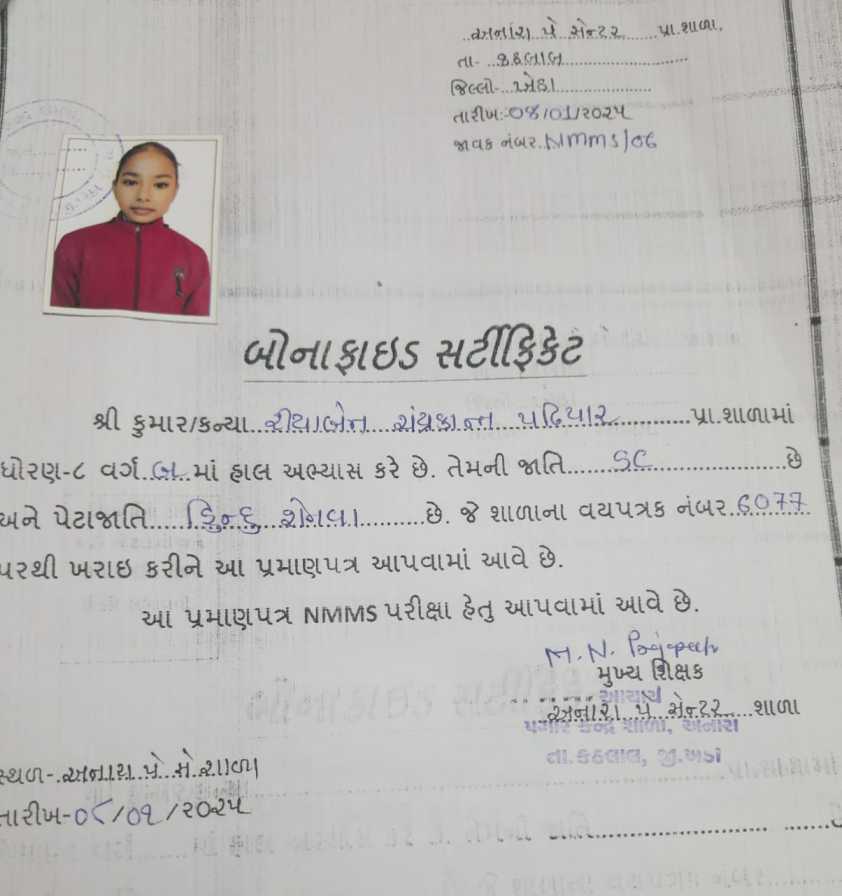 અનારા પે સેન્ટર પ્રા.શાળા.
તા- કઠલાલ
જિલ્લો- ખેડા
તારીખ:-08/01/2025
જાવક નંબર. Nmms/06
બોનાફાઇડ સર્ટીફિકેટ
શ્રી કુમાર/કન્યા પરિયાર પ્રા.શાળામાં
ધોરણ-૮ વર્ગ બ માં હાલ અભ્યાસ કરે છે. તેમની જાતિ SC છે
અને પેટાજાતિ હિન્દુ છે. જે શાળાના વયપત્રક નંબર 6077
પરથી ખરાઇ કરીને આ પ્રમાણપત્ર આપવામાં આવે છે.
આ પ્રમાણપત્ર NMMS પરીક્ષા હેતુ આપવામાં આવે છે.
M.N.
મુખ્ય શિક્ષક
આચાર્ય
અનારા પે સેન્ટર શાળા
પગાર કેન્દ્ર શાળા, અનારા
તા.કઠલાલ, જી.ખેડા
સ્થળ- અનારા પે સે શાળા
તારીખ-08/01/2025